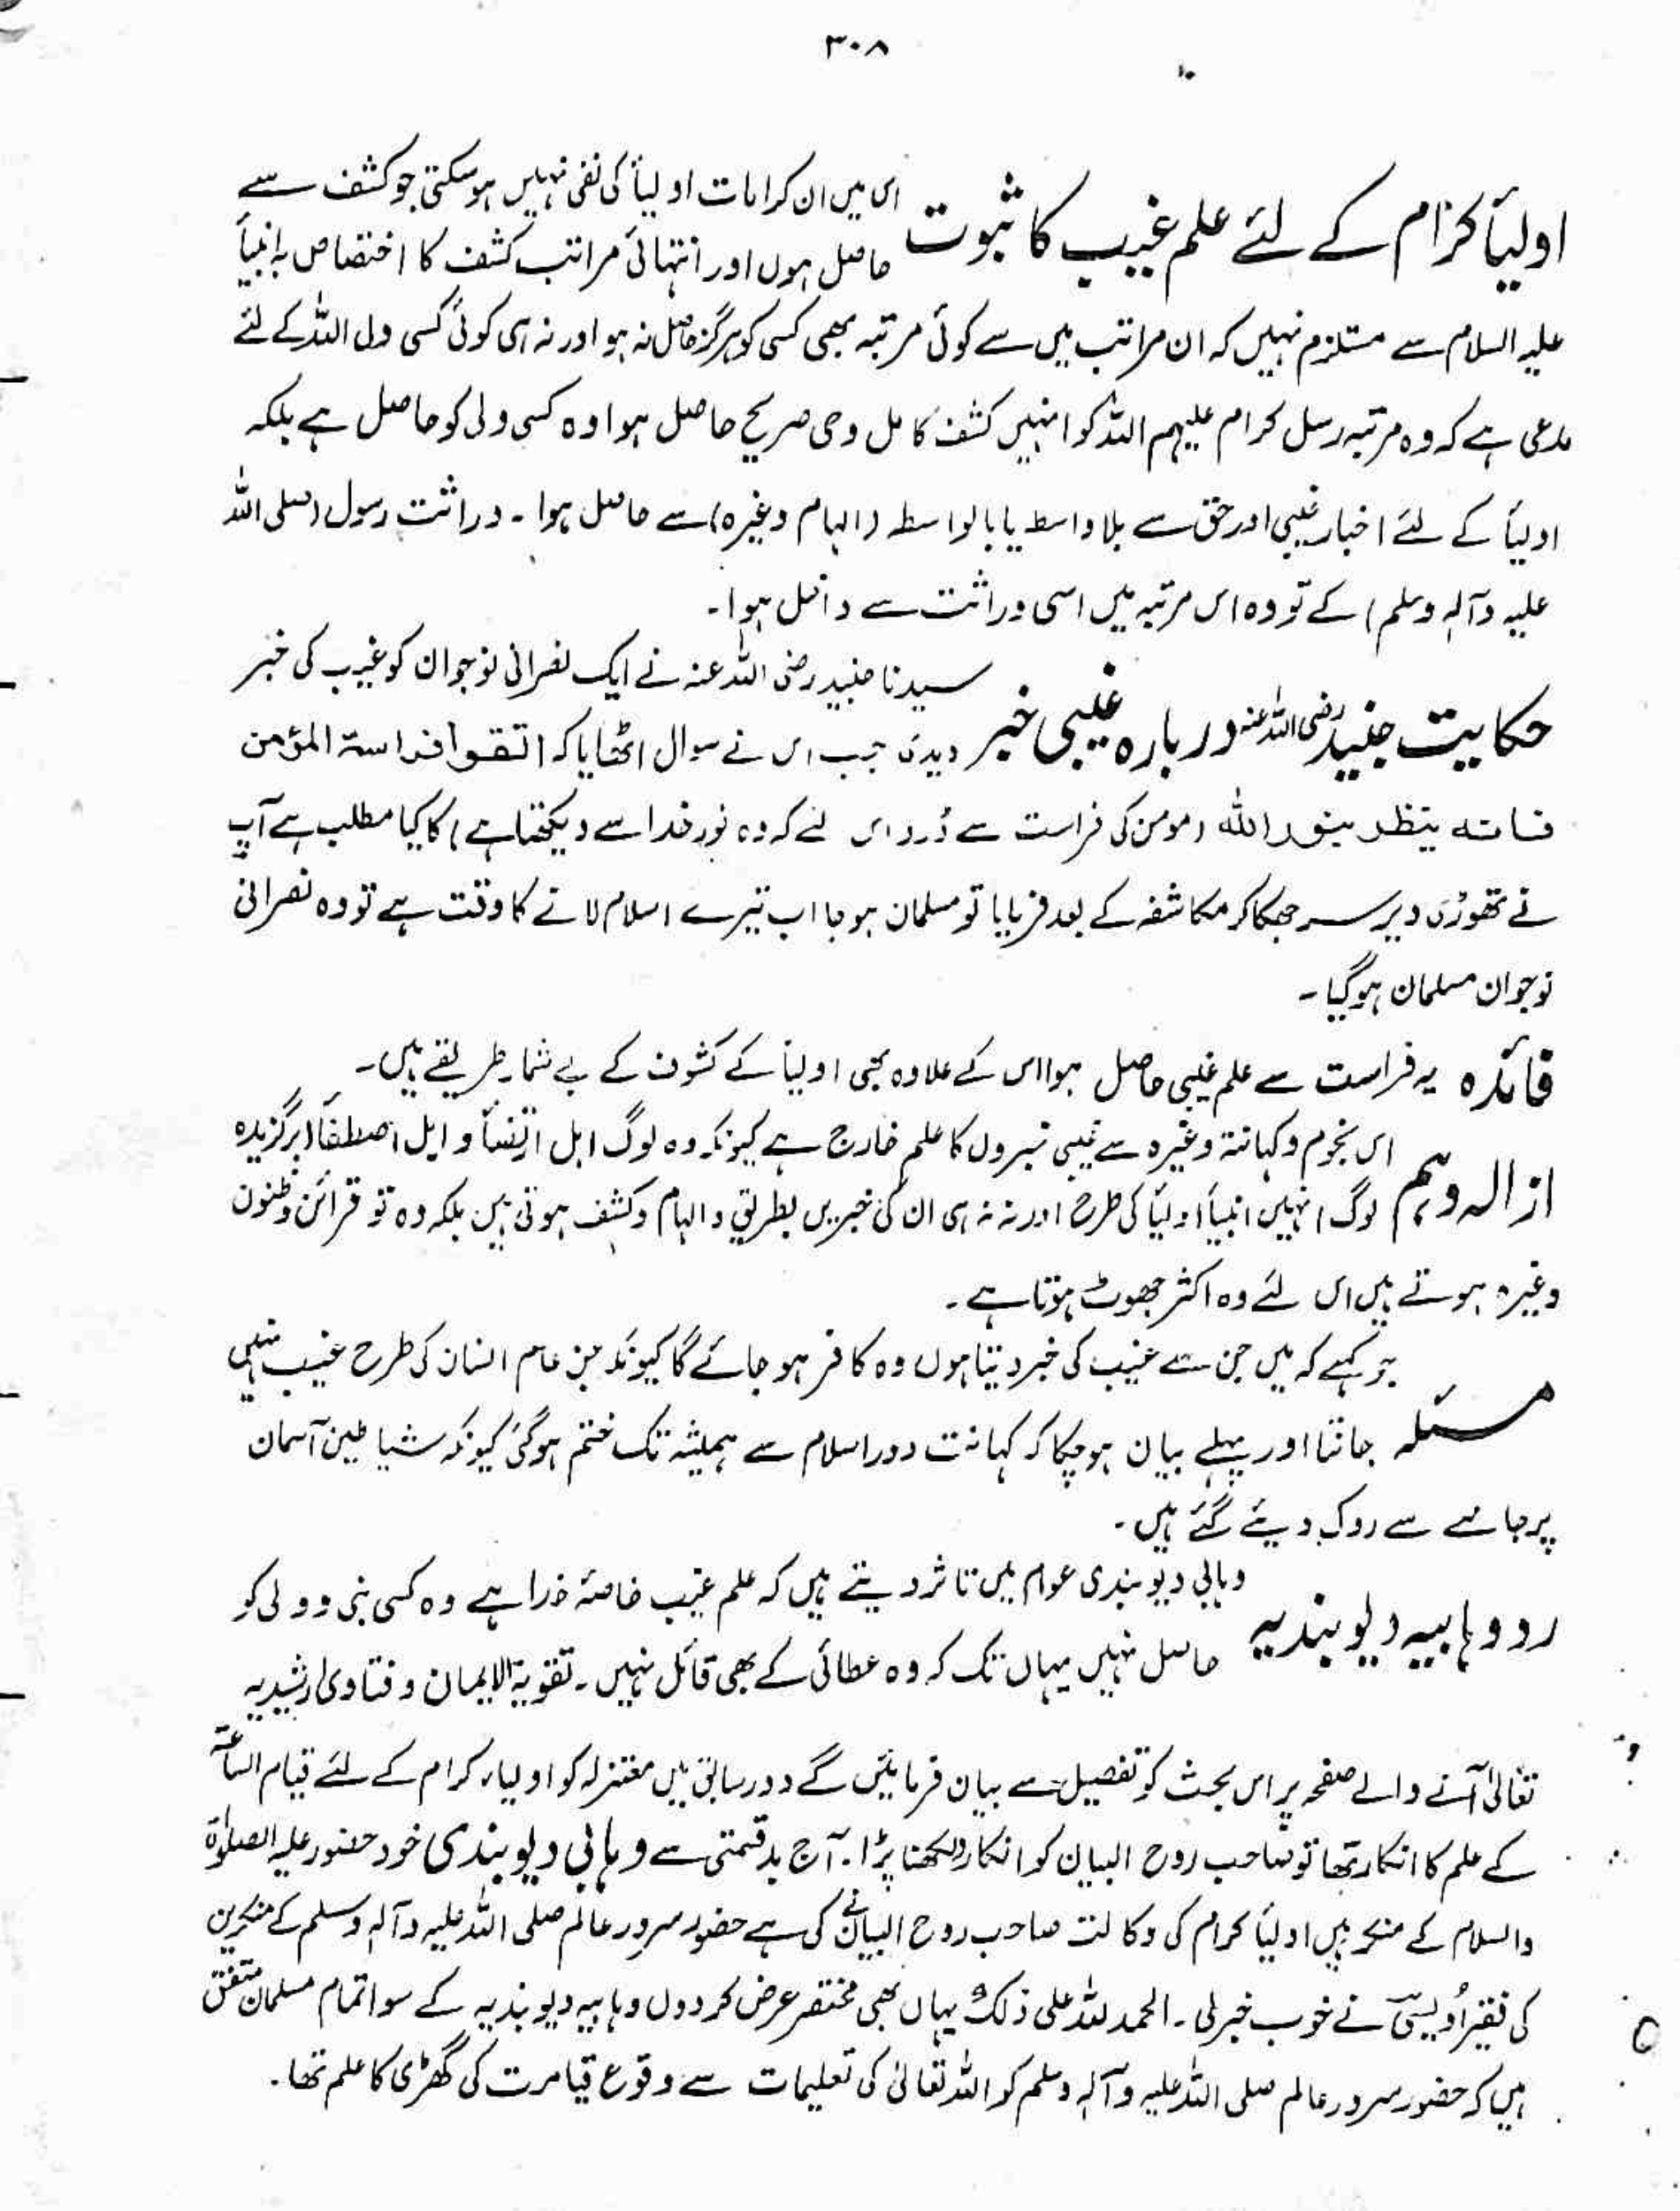 ۳۰۸
اولیأ کرام کے لئے علم غیب کا ثبوت اس میں ان کرامات اولیأ کی نفی نہیں ہوسکتی جو کشف سے
حاصل ہوں اور انتہائی مراتب کشف کا اختصاص بہ انبیأ
علیہ السلام سے مستلزم نہیں کہ ان مراتب میں سے کوئی مرتبہ بھی کسی کو ہرگز حاصل نہ ہو اور نہ ہی کوئی کسی ولی اللہ کے لئے
مدعی ہے کہ وہ مرتبہ رسل کرام علیہم اللہ کو انہیں کشف کامل وحی صریح حاصل ہوا وہ کسی ولی کو حاصل ہے بلکہ
اولیأ کے لئے اخبار غیبی اور حق سے بلا واسطہ یا بالواسطہ (الہام وغیرہ) سے حاصل ہوا ۔ وراثت رسول (صلی اللہ
علیہ وآلہ وسلم) کے تو وہ اس مرتبہ میں اسی وراثت سے داخل ہوا۔
حکایت جنید رضی اللہ عنہ دربارہ غیبی خبر سیدنا جنید رضی اللہ عنہ نے ایک نصرانی نوجوان کو غیب کی خبر
دیدی جب اس نے سوال اٹھایا کہ اتقوا فراسۃ المؤمن
فانہ ینظر بنور اللہ (مومن کی فراست سے ڈرو اس لئے کہ وہ نور خدا سے دیکھتا ہے) کا کیا مطلب ہے آپ
نے تھوڑی دیر سر جھکا کر مکاشفہ کے بعد فرمایا تو مسلمان ہو جا اب تیرے اسلام لانے کا وقت ہے تو وہ نصرانی
نوجوان مسلمان ہوگیا ۔
فائدہ یہ فراست سے علم غیبی حاصل ہوا اس کے علاوہ بھی اولیأ کے کشوف کے بے شمار طریقے ہیں۔
ازالہ وہم اس نجوم وکہانۃ وغیرہ سے غیبی خبروں کا علم خارج ہے کیونکہ وہ لوگ اہل ارتضأ و اہل اصطفأ (برگزیدہ
لوگ) نہیں انبیأ اولیأ کی طرح اور نہ نہ ہی ان کی خبریں بطریق و الہام وکشف ہوتی ہیں بلکہ وہ تو قرائن وظنون
وغیرہ ہوتے ہیں اس لئے وہ اکثر جھوٹ ہوتا ہے ۔
مسئلہ جو کہے کہ میں جن سے غیب کی خبر دیتا ہوں وہ کافر ہو جائے گا کیونکہ جن عام انسان کی طرح غیب نہیں
جانتا اور پہلے بیان ہوچکا کہ کہانت دور اسلام سے ہمیشہ تک ختم ہوگئی کیونکہ شیاطین آسمان
پر جانے سے روک دیئے گئے ہیں ۔
رد وہابیہ دیوبندیہ وہابی دیوبندی عوام میں تاثر دیتے ہیں کہ علم غیب خاصۂ خدا ہے وہ کسی نبی و ولی کو
حاصل نہیں یہاں تک کہ وہ عطائی کے بھی قائل نہیں ۔ تقویۃ الایمان و فتاویٰ رشیدیہ
تعالیٰ آنے والے صفحہ پر اس بحث کو تفصیل سے بیان فرمائیں گے دور سابق میں معتزلہ کو اولیاء کرام کے لئے قیام الساعۃ
کے علم کا انکار تھا تو صاحب روح البیان کو انکار لکھنا پڑا ۔ آج بدقسمتی سے وہابی دیوبندی خود حضور علیہ الصلوٰۃ
والسلام کے منکر ہیں اولیأ کرام کی وکالت صاحب روح البیان نے کی ہے حضور سرور عالم صلی اللہ علیہ وآلہ وسلم کے منکرین
کی فقیر اُویسی نے خوب خبر لی ۔ الحمد للہ علی ذلک یہاں بھی مختصر عرض کر دوں وہابیہ دیوبندیہ کے سوا تمام مسلمان متفق
ہیں کہ حضور سرور عالم صلی اللہ علیہ وآلہ وسلم کو اللہ تعالیٰ کی تعلیمات سے وقوع قیامت کی گھڑی کا علم تھا ۔